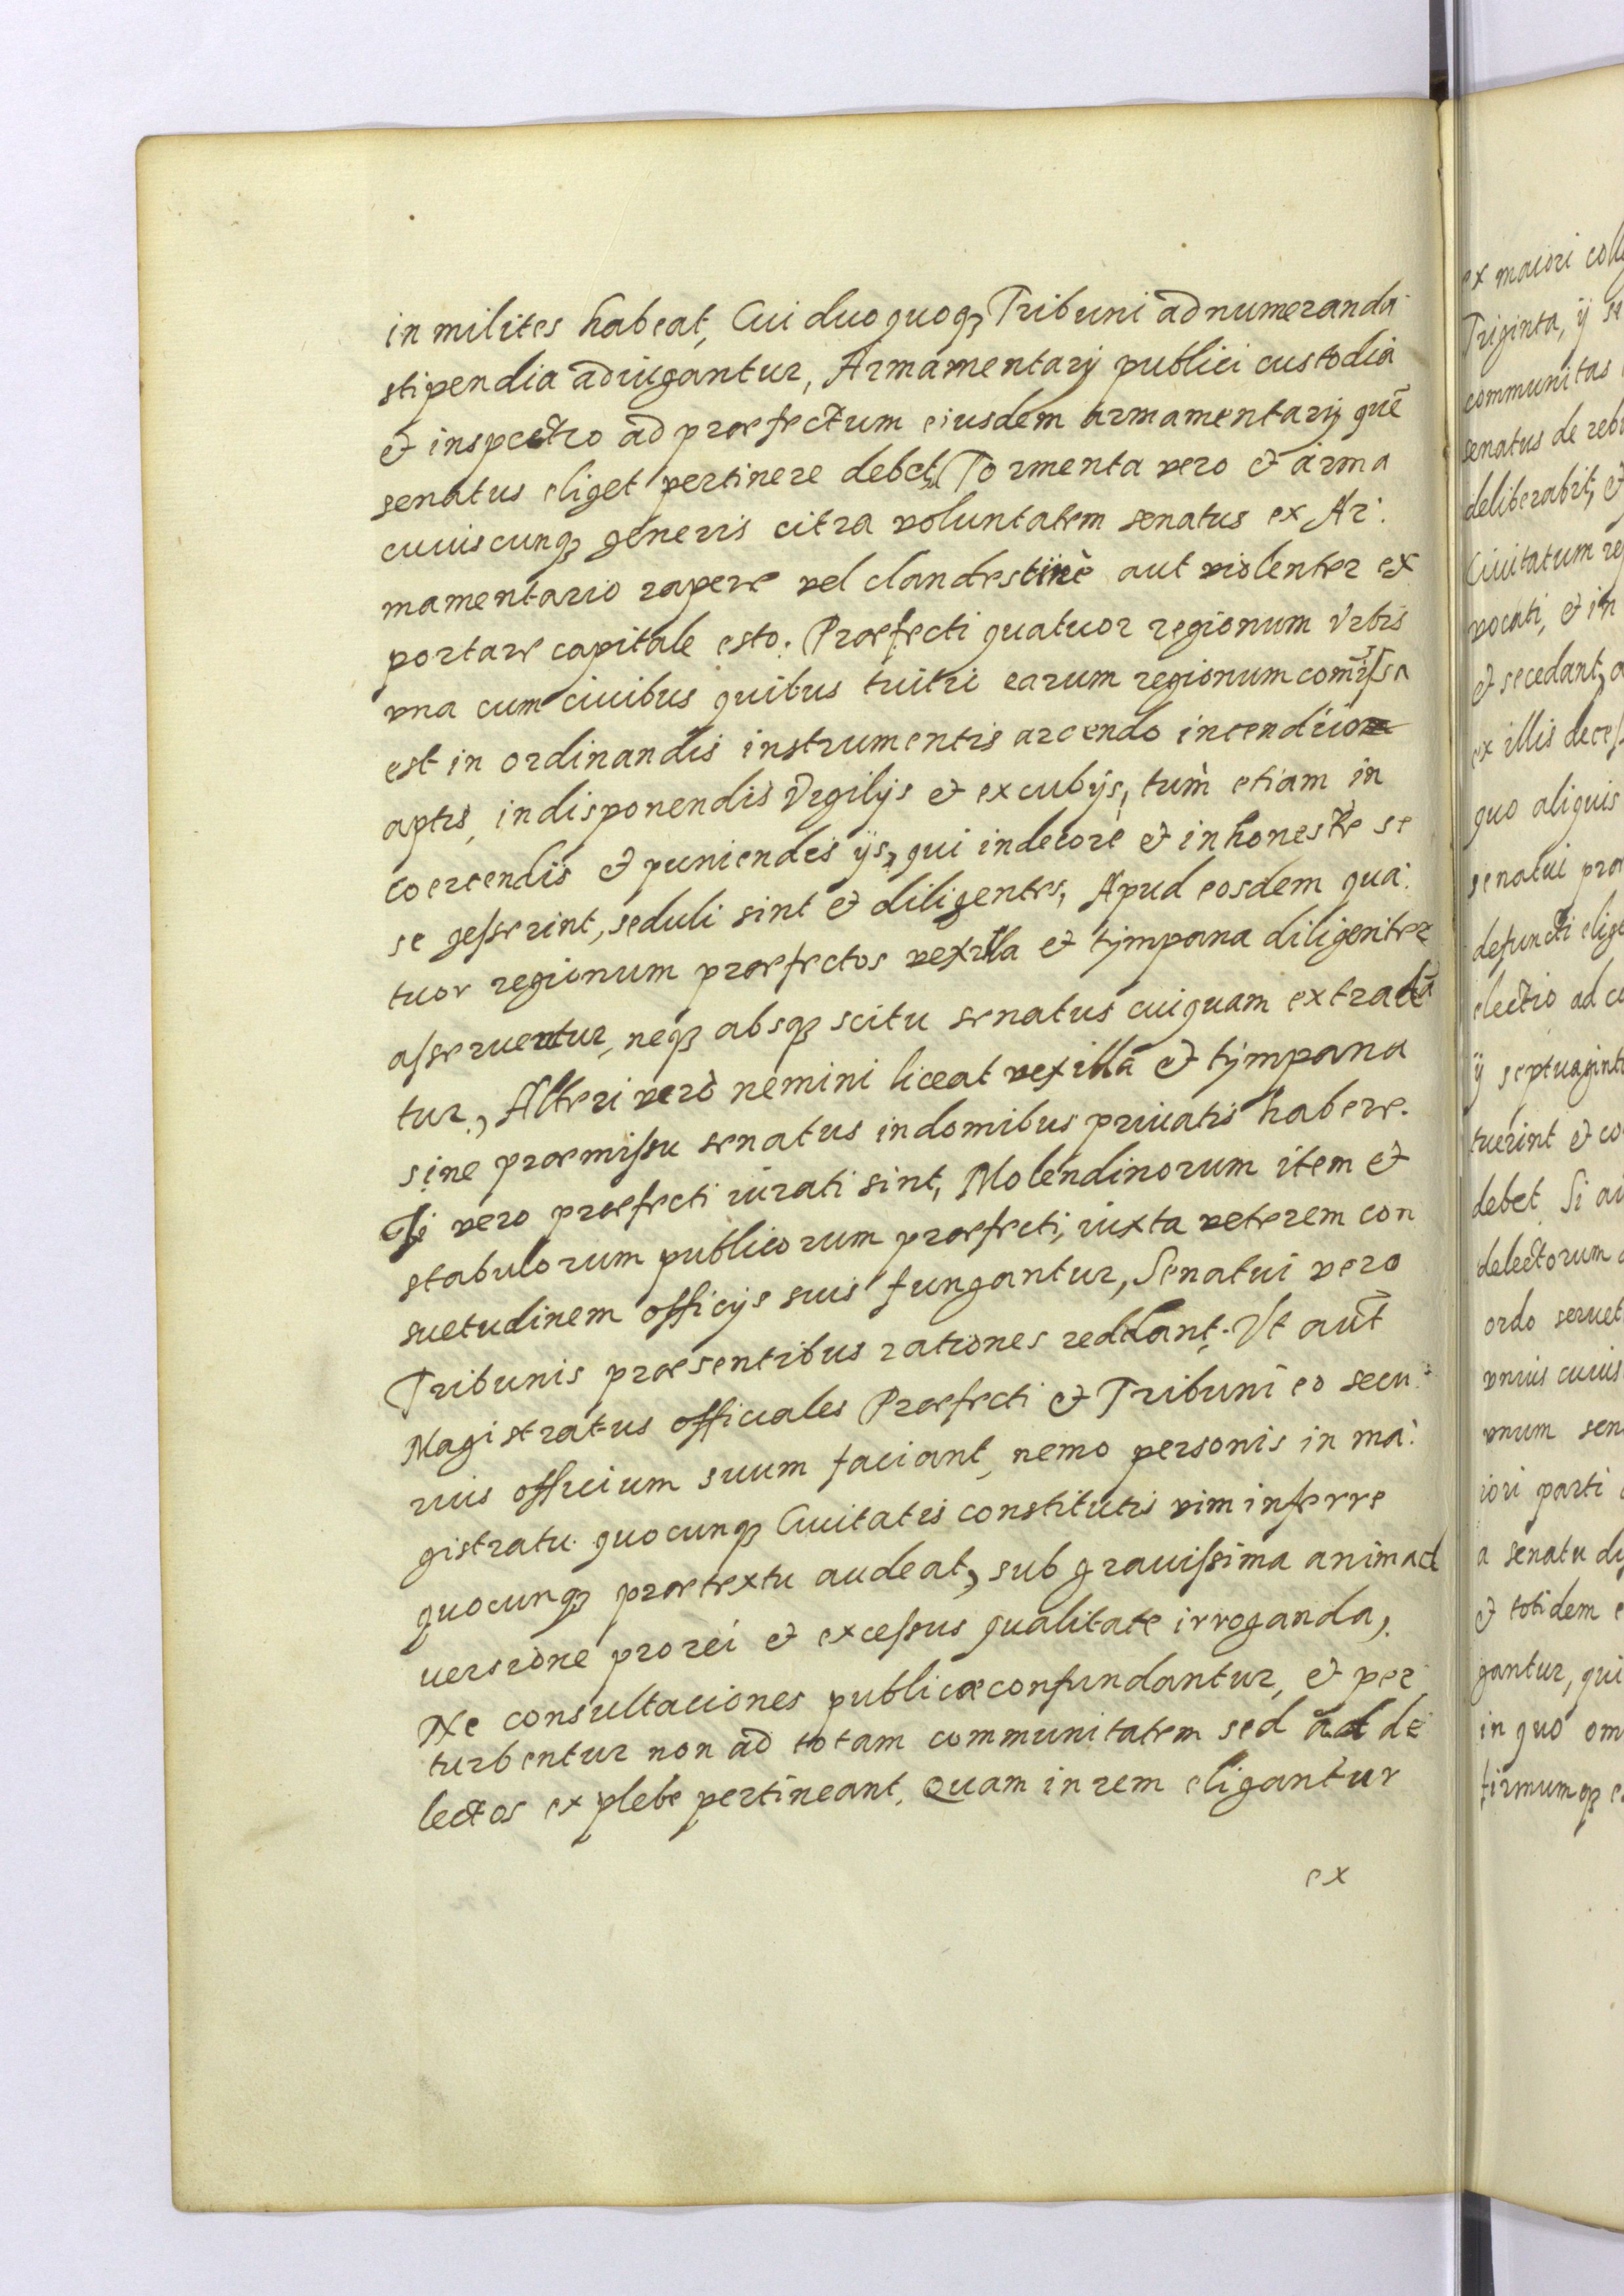 in milites habeat, Cui duo quoqȝ Tribuni ad numeranda
stipendia adiugantur, Armamentarij publici custodia
& inspectio ad praefectum eiusdem armamentarij quē
senatus eliget pertinere debet, Tormenta vero & arma
cuiuscunqȝ generis citra voluntatem senatus ex Ar:
mamentario rapere vel clandestinè aut violenter ex
portare capitale esto. Praefecti quatuor regionum Vrbis
vna cum ciuibus quibus tuitio earum regionum com̄issa
est in ordinandis instrumentis arcendo incendio
aptis, in disponendis Vigilijs & excubijs, tum etiam in
coercendis & puniendis ijs, qui indecore & inhoneste se
se gesserint, seduli sint & diligentes, Apud eosdem qua:
tuor regionum praefectos vexilla & tympana diligenter
asseruentur, neqȝ absqȝ scitu senatus cuiquam extradā
tur, Alteri verò nemini liceat vexilla & tympana
sine praemissu senatus in domibus priuatis habere.
Ii vero praefecti iurati sint, Molendinorum item &
stabulorum publicorum praefecti, iuxta veterem con
suetudinem officijs suis fungantur, Senatui vero
Tribunis praesentibus rationes reddant. Vt aūt
Magistratus officiales Praefecti & Tribuni eo secu:
rius officium suum faciant, nemo personis in ma:
gistratu quocunqȝ Ciuitatis constitutis vim inferre
quocunqȝ praetextu audeat, sub grauissima animad
uersione pro rei & excessus qualitate irroganda,
Ne consultaciones publicae confundantur, & per
turbentur non ad totam communitatem sed ad de
lectos ex plebe pertineant. Quam in rem eligantur
ex
ex maiori
Triginta, ij
communitas
senatus de
deliberabit, &
Ciuitatum
vocati, & in
& secedant,
ex illis
quo aliquis
senatui
defuncti
electio ad
ij
tuerint &
debet. Si
delectorum
ordo
vnius
vnum
iori parti
a senatu
& totidem
gantur, qui
in quo
firmumqȝ